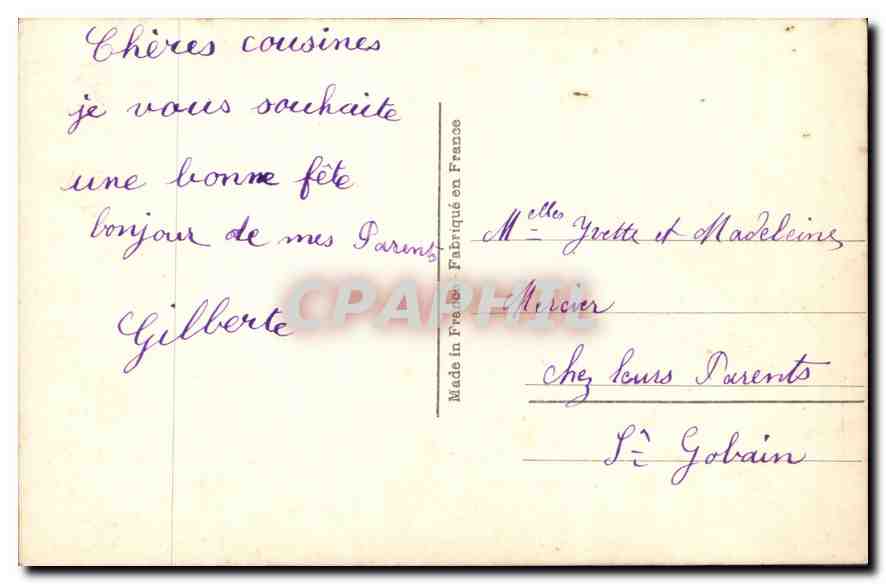 Chères cousines
je vous souhaite
une bonne fête
bonjour de mes Parents
Gilberte
Made in France - Fabriqué en France
Melles Yvette et Madeleine
Mercier
chez leurs Parents
St Gobain
CPAPHIL